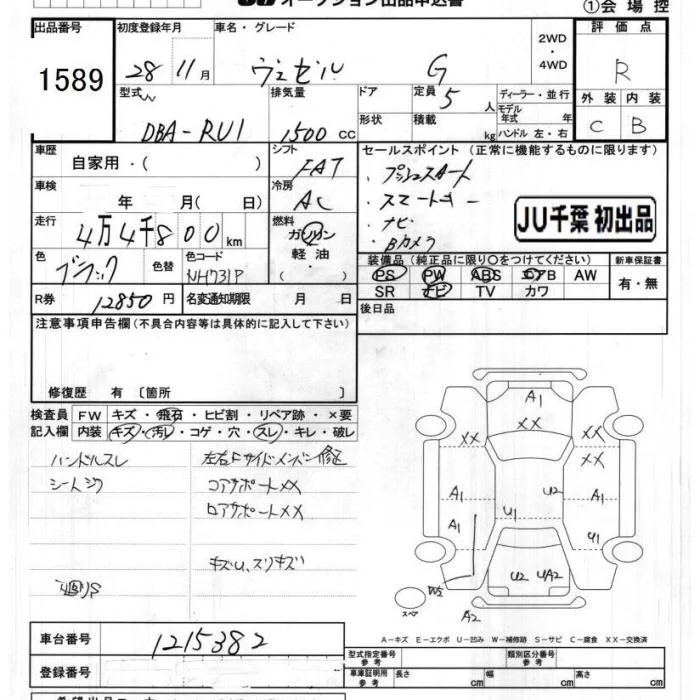 オークション出品申込書
①会場控
出品番号 初度登録年月 車名・グレード 2WD・4WD 評価点
1589 28 11月 ヴェゼル G R
型式 排気量 ドア 定員 5 人 ディーラー・並行 外装 内装
DBA-RU1 1500 cc 形状 積載 kg モデル年式 年 ハンドル 左・右 C B
車歴 自家用・( ) シフト FAT セールスポイント (正常に機能するものに限ります)
車検 年 月( 日) 冷房 AC プッシュスタート
スマートキー
走行 4万4千800 km 燃料 ガソリン・軽油・( ) ナビ
Bカメラ
JU千葉 初出品
色 ブラック 色替 色コード NH731P 装備品 (純正品に限り○をつけてください) 新車保証書
PS PW ABS エアB AW 有・無
R券 12850 円 名変通知期限 月 日 SR ナビ TV カワ
後日品
注意事項申告欄 (不具合内容等は具体的に記入して下さい)
修復歴 有 〔箇所 〕
検査員 FW キズ・飛石・ヒビ割・リペア跡・×要
記入欄 内装 キズ・汚レ・コゲ・穴・スレ・キレ・破レ
ハンドルスレ 左右Fサイドメンバー修正
シートシワ コアサポートXX
ロアサポートXX
キズU、スリキズ
A1
XX
XX XX
XX
A1 U2 A1
A1 U1 U1
W2 U2 UA2
スペア A2
A-キズ E-エクボ U-凹み W-補修跡 S-サビ C-腐食 XX-交換済
車台番号 1215382 型式指定番号 参考 類別区分番号 参考
登録番号 車庫証明用 参考 長さ cm 幅 cm 高さ cm